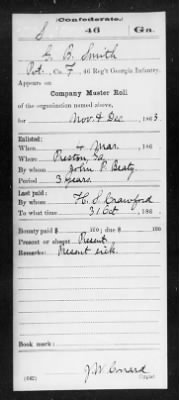 Confederate.
S 46 Ga.
G. B. Smith
Pvt. Co. F, 46 Reg't Georgia Infantry.
Appears on
Company Muster Roll
of the organization named above,
for Nov & Dec, 1863
Enlisted:
When 4 Mar, 186
Where Preston, Ga
By whom John P. Beaty
Period 3 years
Last paid:
By whom H. S. Crawford
To what time 31 Oct, 186
Bounty paid $ 100; due $ 100
Present or absent Present
Remarks: Present sick.
Book mark:
J. W.
(642) Copyist.